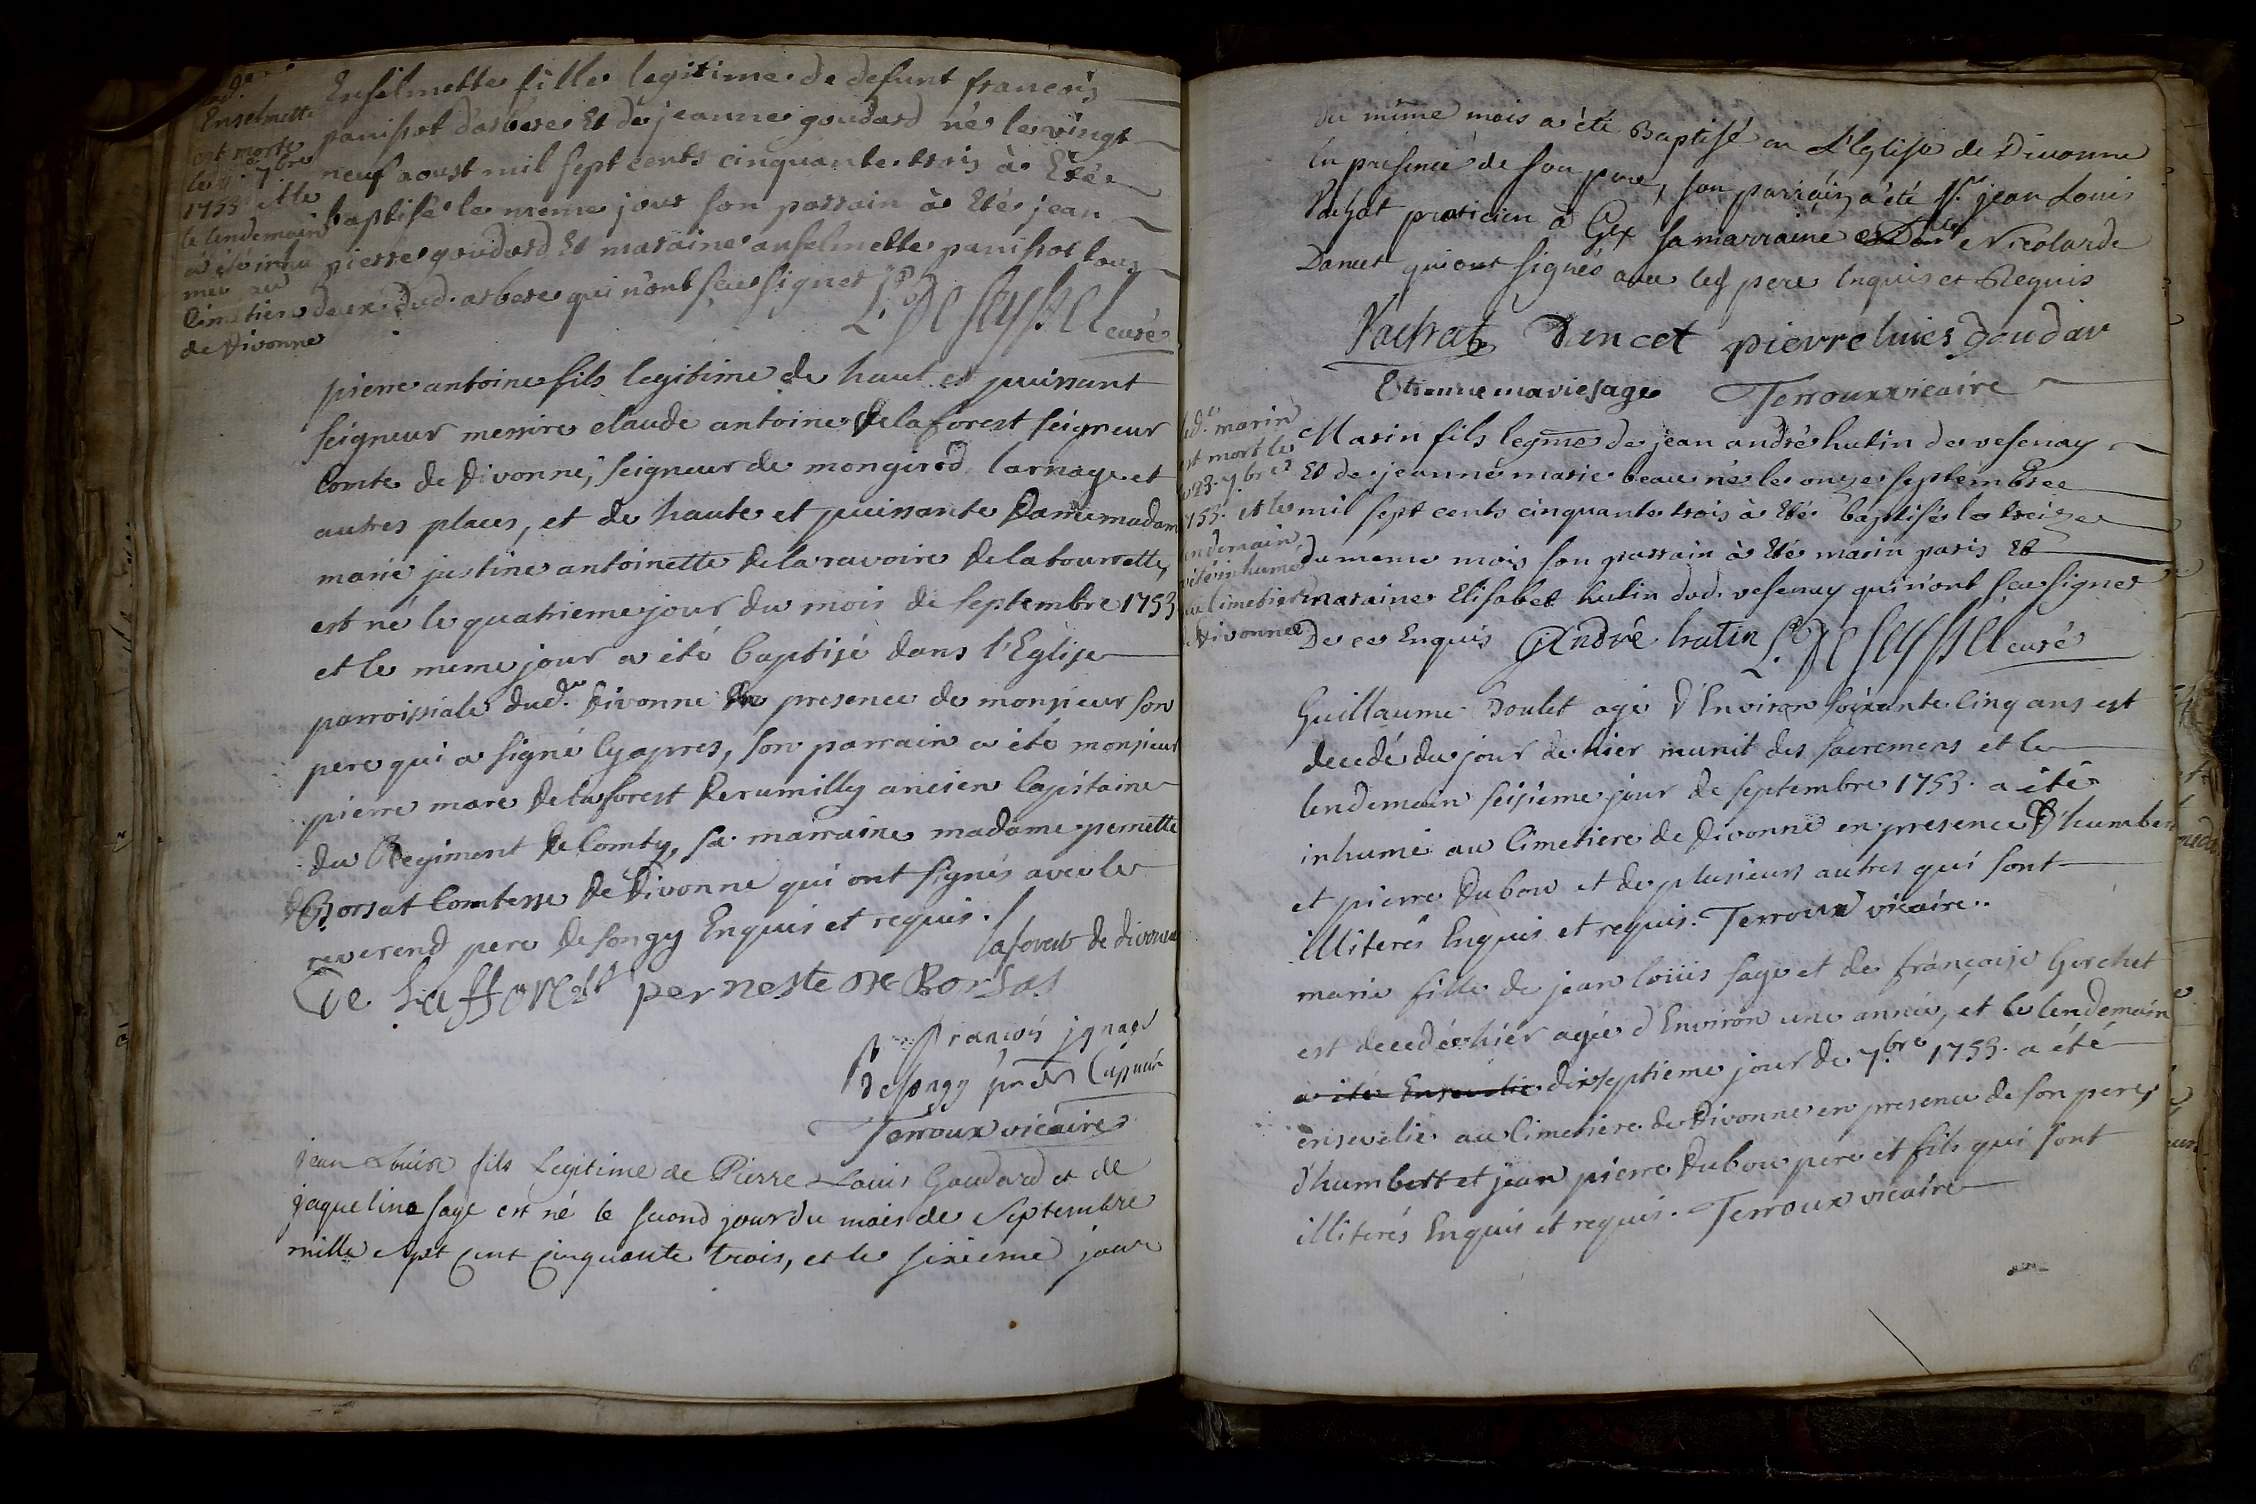 lad.e
Enselmette
est morte
le 11e 7bre
1753 et le
le lendemain
a été inhu
mee au
Cimetiere
de Divonne
Enselmette fille legitime de defunt francois
panissot d'arbere Et de jeanne goudard né le vingt
neuf aoust mil sept cents cinquante trois à Eté
baptisé le meme jour son parrain à Eté jean
pierre goudard Et maraine anselmette panissot tous
deux dud. arbere qui n'ont sceu signer L. De seyssel curé
pierre antoine fils legitime de haut et puissant
seigneur messire claude antoine Delaforest seigneur
Comte de Divonne, seigneur de mongirod larnage et
autres places, et de haute et puissante Dame madame
marie justine antoinette Delaravoire Delatourrette,
est né le quatrieme jour du mois de septembre 1753
et le meme jour a été baptisé dans l'Eglise
parroissiale dud. Divonne En presence de monsieur son
pere qui a signé Cyapres, son parrain a été monsieur
pierre marc Delaforest Derumilly ancien Capitaine
du Regiment de Comty, sa marraine madame pernette
de Borsat Comtesse De Divonne qui ont signés avec le
reverend pere Desongy Enquis et requis. laforest de divonne
De Lafforest perneste De Borsat
f francois jgnace
Desongy Capucin
Terroux vicaire
jean Louis fils Legitime de Pierre Louis Goudard et de
jaqueline sage est né le second jour du mois de Septembre
mille sept cent cinquante trois, et le sixieme jour
du même mois a été Baptisé en L'Eglise de Divonne
En presence de son pere, son parrain a été Sr. jean Louis
Vachat praticien à Gex sa marraine Nicolarde
Dancet qui ont signés avec les pere Enquis et Requis
Vachat Dancet pierre luies goudar
Etienne mavie sage Terroux vicaire
led. marin
est mort le
23. 7bre
1753. et le
lendemain
a été inhumé
au Cimetiere
de Divonne
Marin fils legme de jean andré hutin de vesenay
Et de jeanne marie beau né le onze septembre
mil sept cents cinquante trois à Eté baptisé le treize
du meme mois son parrain à Eté marin paris Et
maraine Elisabet hutin dud. vesenay qui n'ont sceu signer
De ce Enquis André hutin L. De seyssel curé
Guillaume Doulet agé d'Environ soixante cinq ans est
decedé du jour de hier munit des sacremens et le
lendemain seisieme jour de septembre 1753. a été
inhumé au Cimetiere de Divonne en presence d'humbert
et pierre Dubou et de plusieurs autres qui sont
illiterés Enquis et requis. Terroux vicaire..
marie fille de jean loüis sage et de françoise Gerchet
est decedée hier agée d'Environ une année, et le lendemain
a été Ensevelie dixseptieme jour de 7bre 1753. a été
ensevelie au Cimetiere de Divonne en presence de son pere,
d'humbert et jean pierre Dubou pere et fils qui sont
illiterés Enquis et requis. Terroux vicaire